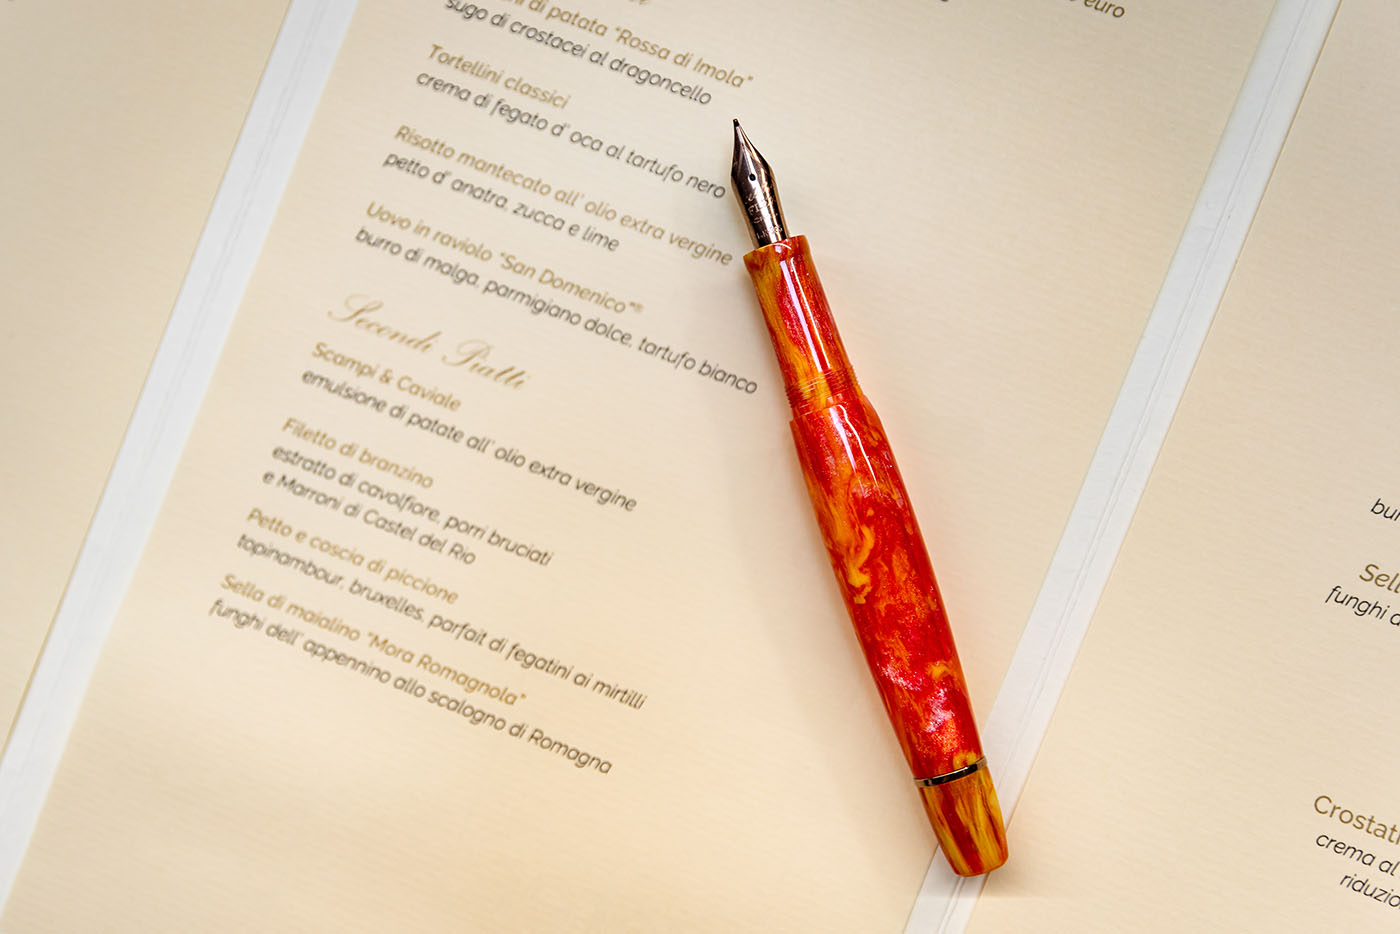 euro
di patata "Rossa di Imola"
sugo di crostacei al dragoncello
Tortellini classici
crema di fegato d' oca al tartufo nero
Risotto mantecato all' olio extra vergine
petto d' anatra, zucca e lime
Uovo in raviolo "San Domenico"®
burro di malga, parmigiano dolce, tartufo bianco
Secondi Piatti
Scampi & Caviale
emulsione di patate all' olio extra vergine
Filetto di branzino
estratto di cavolfiore, porri bruciati
e Marroni di Castel del Rio
Petto e coscia di piccione
topinambour, bruxelles, parfait di fegatini ai mirtilli
Sella di maialino "Mora Romagnola"
funghi dell' appennino allo scalogno di Romagna
bur
Sell
funghi d
Crostat
crema al
riduzio